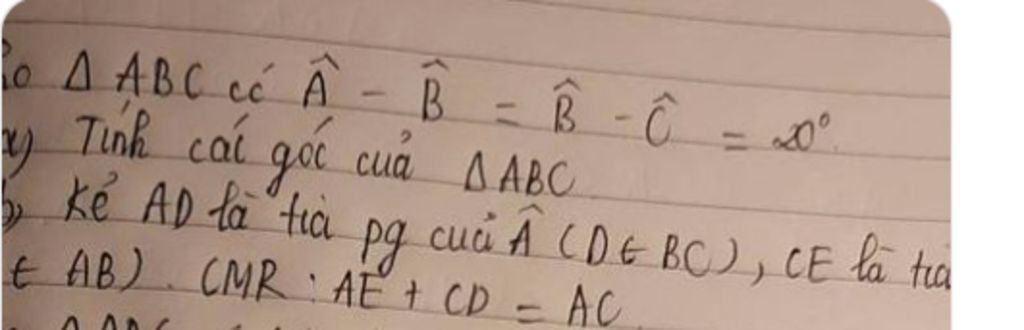 Δ ABC có Â - B̂ = B̂ - Ĉ = 20°
a) Tính các góc của Δ ABC
b) Kẻ AD là tia pg của Â (D ∈ BC), CE là tia
∈ AB). CMR: AE + CD = AC